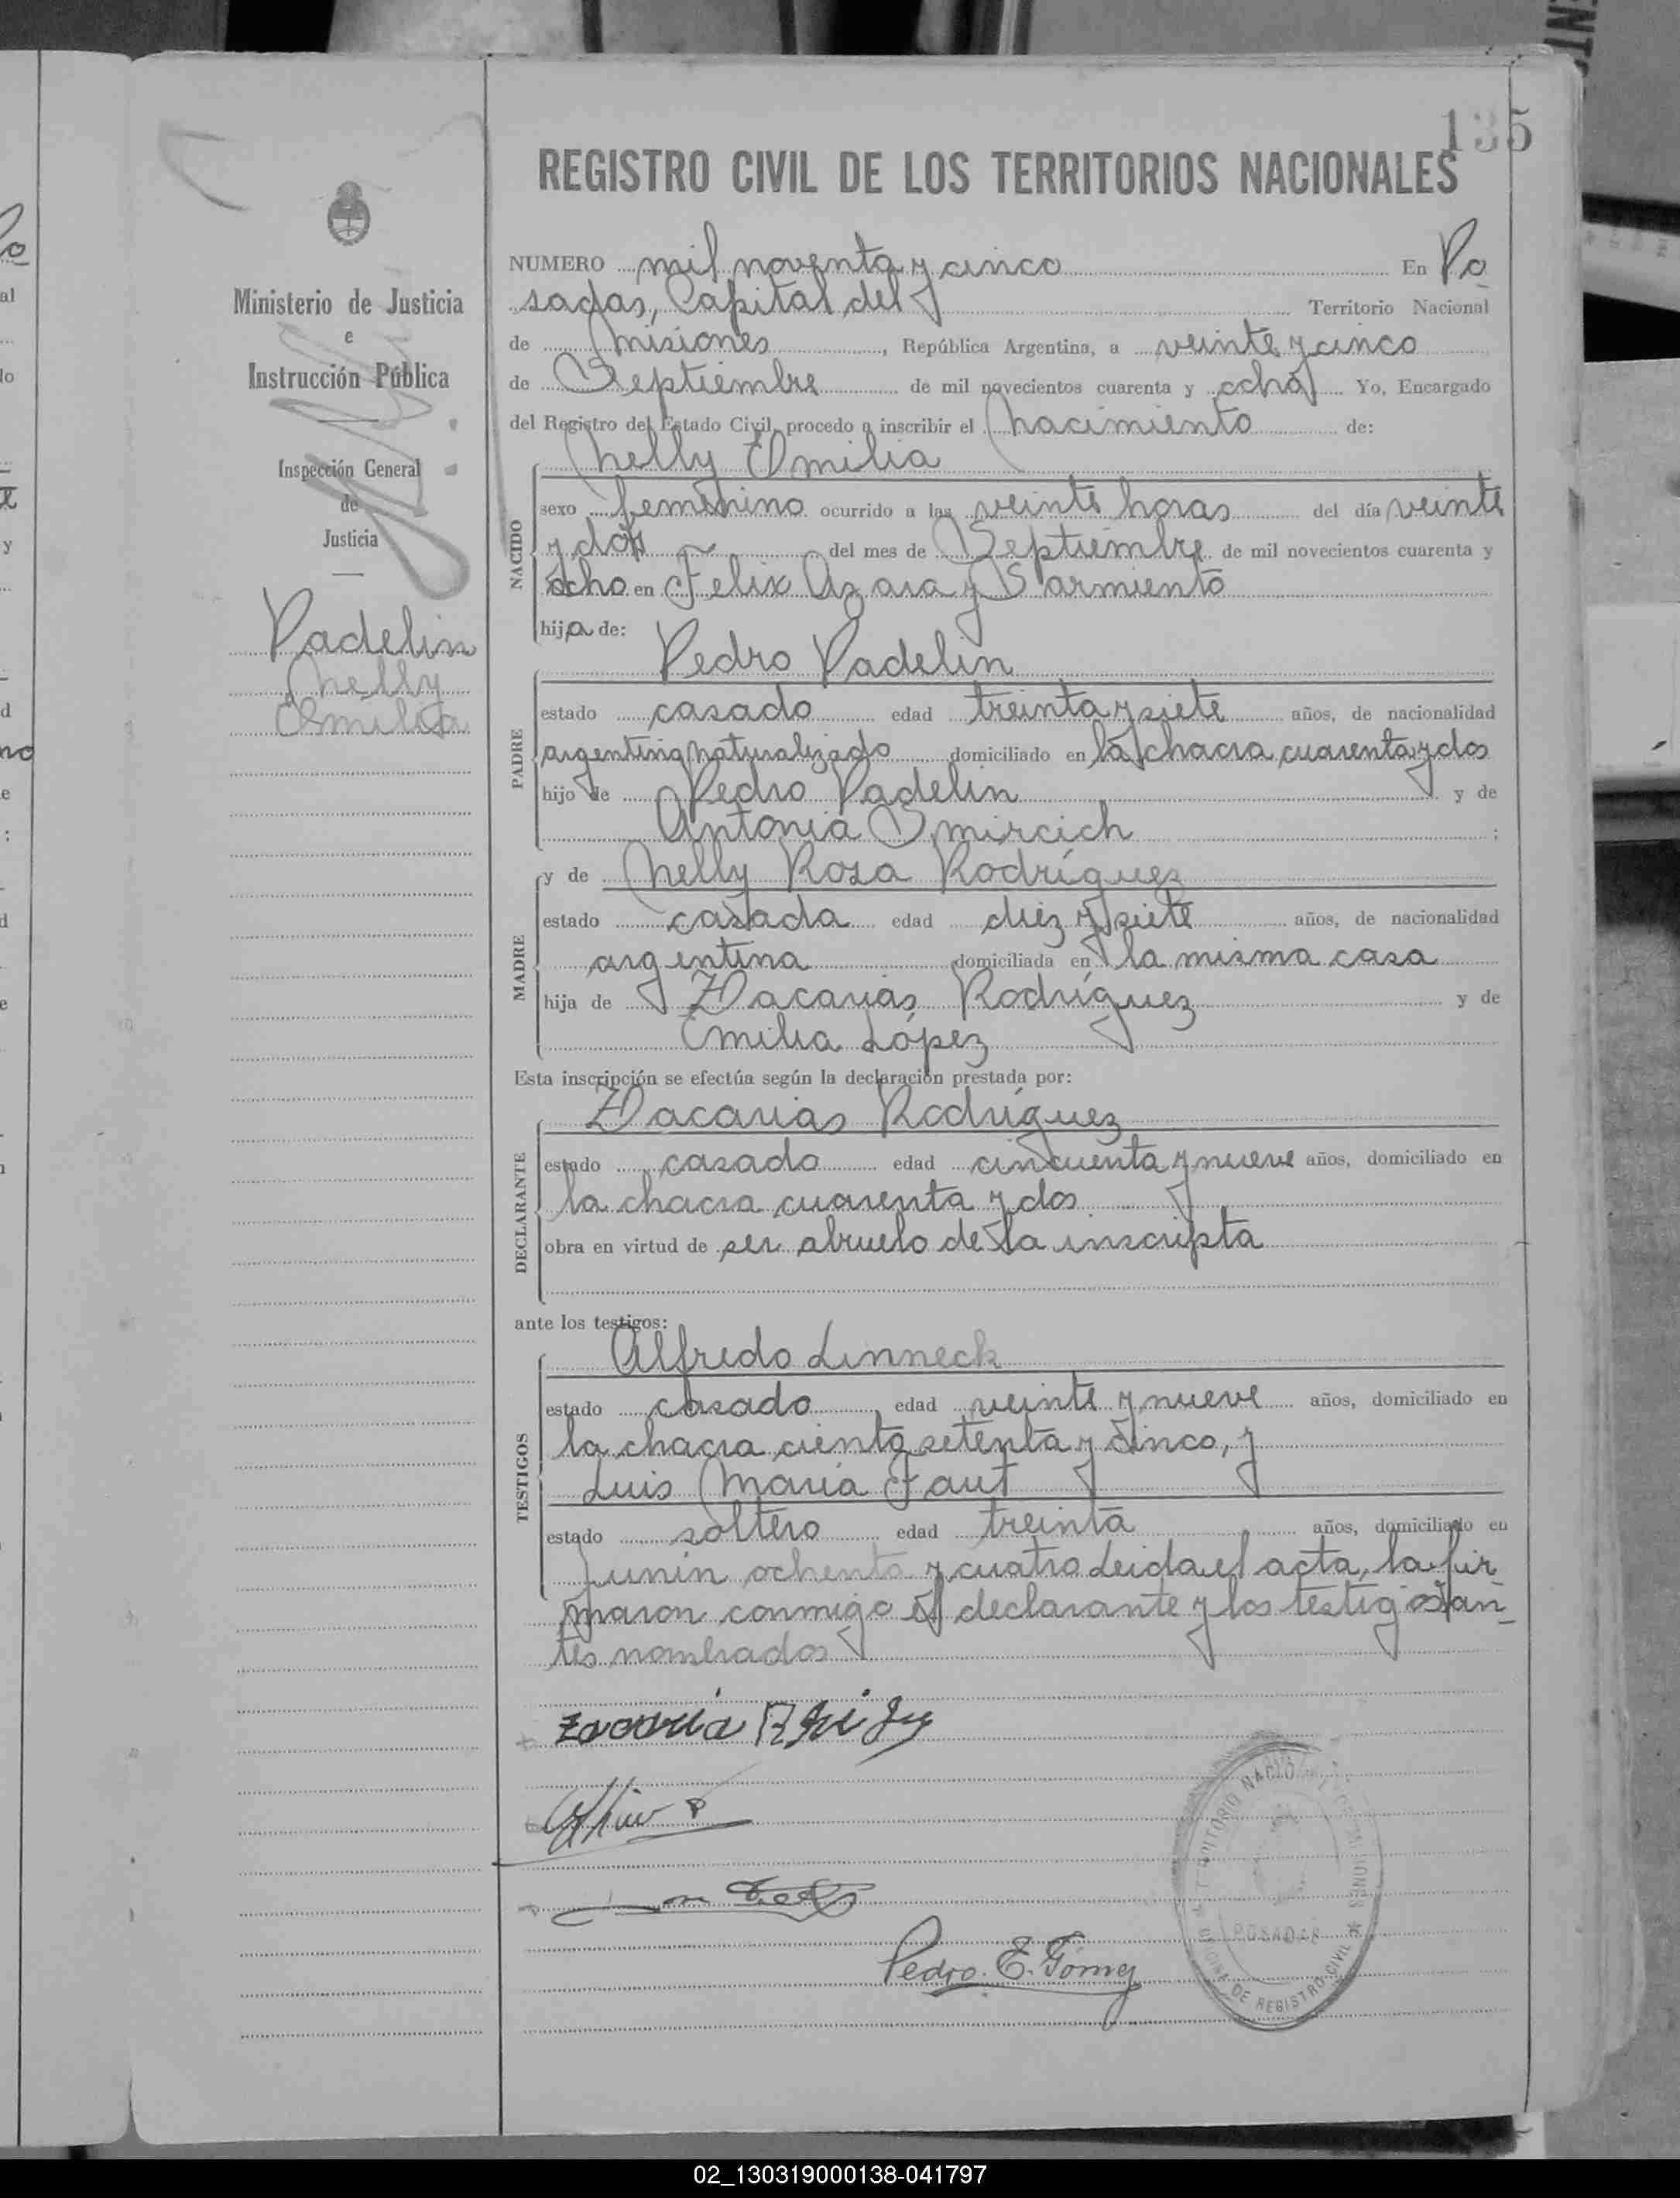 135
REGISTRO CIVIL DE LOS TERRITORIOS NACIONALES
Ministerio de Justicia
e
Instrucción Pública
Inspección General
de
Justicia
Padelin
Nelly
Emilia
NUMERO mil noventa y cinco En Po
sadas, Capital del Territorio Nacional
de Misiones, República Argentina, a veinte y cinco
de Septiembre de mil novecientos cuarenta y ocho Yo, Encargado
del Registro del Estado Civil, procedo a inscribir el nacimiento de:
Nelly Emilia
NACIDO
sexo femenino ocurrido a las veinte horas del día veinte
y dos del mes de Septiembre de mil novecientos cuarenta y
ocho en Felix Azara y Sarmiento
hija de:
Pedro Padelin
PADRE
estado casado edad treinta y siete años, de nacionalidad
argentino naturalizado domiciliado en la chacra cuarenta y dos
hijo de Pedro Padelin y de
Antonia Smircich ;
y de Nelly Rosa Rodríguez
MADRE
estado casada edad diez y siete años, de nacionalidad
argentina domiciliada en la misma casa
hija de Zacarias Rodríguez y de
Emilia López
Esta inscripción se efectúa según la declaración prestada por:
Zacarias Rodríguez
DECLARANTE
estado casado edad cincuenta y nueve años, domiciliado en
la chacra cuarenta y dos
obra en virtud de ser abuelo de la inscripta
ante los testigos:
Alfredo Linneck
TESTIGOS
estado casado edad veinte y nueve años, domiciliado en
la chacra ciento setenta y cinco, y
Luis María Faut
estado soltero edad treinta años, domiciliado en
Junin ochenta y cuatro Leida el acta, la fir
maron conmigo el declarante y los testigos an
tes nombrados
Pedro E. Gómez
TERRITORIO NACIONAL DE MISIONES
POSADAS
OFICINA DE REGISTRO CIVIL
02_130319000138-041797